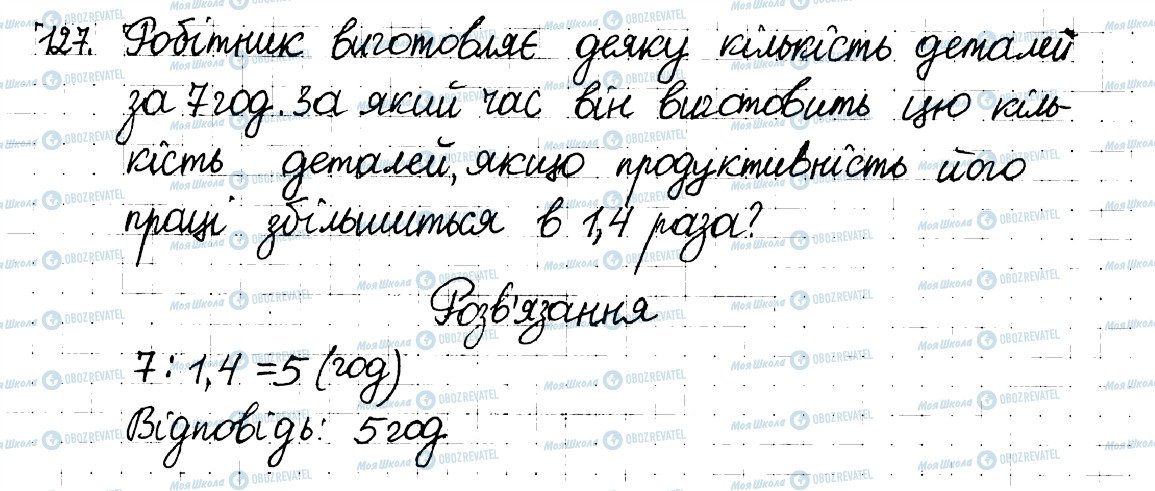 127. Робітник виготовляє деяку кількість деталей
за 7 год. За який час він виготовить цю кіль-
кість деталей, якщо продуктивність його
праці збільшиться в 1,4 раза?
Розв'язання
7 : 1,4 = 5 (год)
Відповідь: 5 год